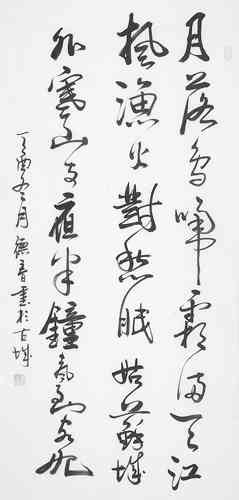 月落乌啼霜满天江
枫渔火對愁眠姑蘇城
外寒山寺夜半鐘声到客船
丁酉冬月德音書於古城